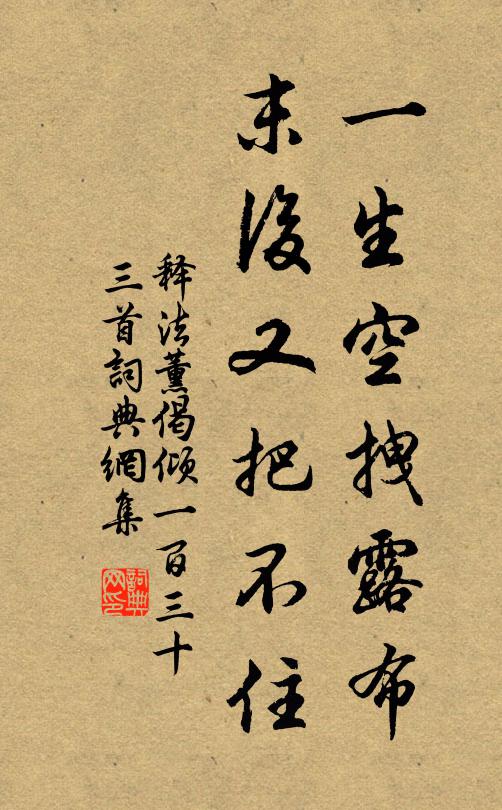 一生空拽露布
末後又把不住
释法薰偈倾一百三十
三首詞典網集
詞典
网印